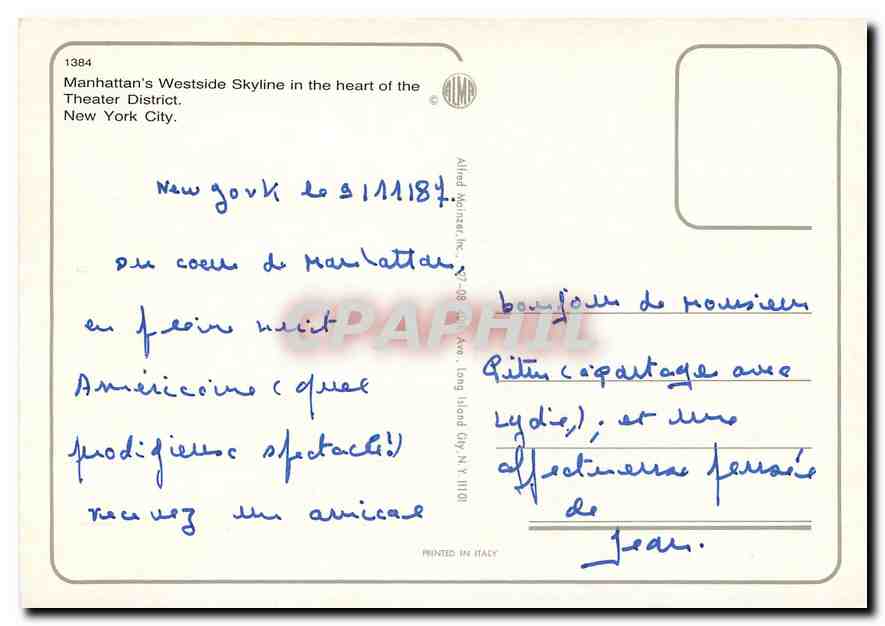 1384
Manhattan's Westside Skyline in the heart of the
Theater District.
New York City.
© ALMA
Alfred Mainzer, Inc., 27-08 Ave., Long Island City, N.Y. 11101
New york le 9/11/87.
au coeur de Manhattan,
en pleine nuit
Américaine (quel
prodigieux spectacle!)
recevez un amical
bonjour de Monsieur
(à partager avec
Lydie,), et une
affectueuse pensée
de
Jean.
CPAPHIL
PRINTED IN ITALY